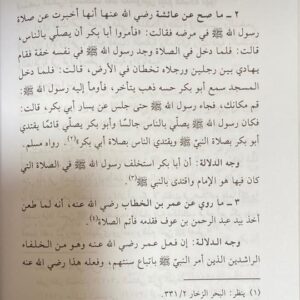 ٢ ـ ما صح عن عائشة رضي الله عنها أنها أخبرت عن صلاة
رسول الله ﷺ في مرضه فقالت: «فأمروا أبا بكر أن يصلّي بالناس،
قالت: فلما دخل في الصلاة وجد رسول الله ﷺ في نفسه خفة فقام
يهادي بين رجلين ورجلاه تخطان في الأرض، قالت: فلما دخل
المسجد سمع أبو بكر حسه ذهب يتأخر، فأومأ إليه رسول الله ﷺ
قم مكانك، فجاء رسول الله ﷺ حتى جلس عن يسار أبي بكر،
فكان رسول الله ﷺ يصلّي بالناس جالسًا وأبو بكر قائمًا يقتدي
أبو بكر بصلاة النبي ﷺ ويقتدي الناس بصلاة أبي بكر»(٢). رواه مسلم.
وجه الدلالة: أن أبا بكر استخلف رسول الله ﷺ في الصلاة التي
كان فيها هو الإمام واقتدى بالنبي ﷺ(٣).
٣ ـ ما روي عن عمر بن الخطاب رضي الله عنه، أنه لما طعن
أخذ بيد عبد الرحمن بن عوف فقدمه فأتم الصلاة(٤).
وجه الدلالة: إن فعل عمر رضي الله عنه وهو من الخلفاء
الراشدين الذين أمر النبيّ ﷺ باتباع سنتهم، وفعله هذا رضي الله عنه
(١) ينظر: البحر الزخار ٣٣١/٢.